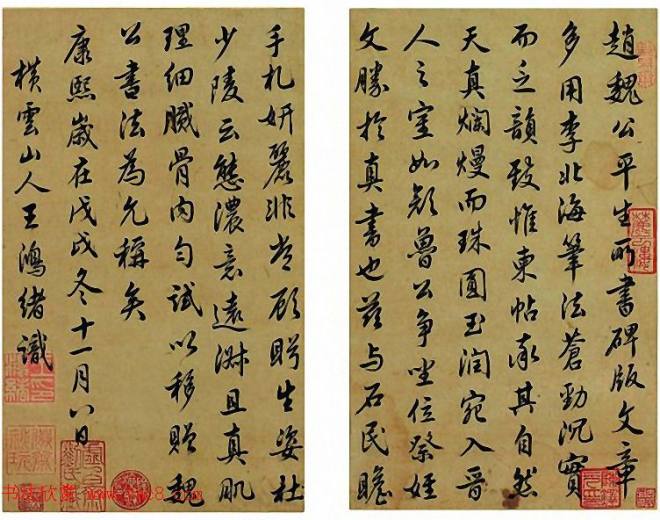 趙魏公平生所書碑版文章
多用李北海筆法蒼勁沉實
而乏韻致惟柬帖其自然
天真爛熳而珠圓玉潤宛入晉
人之室如顏魯公爭坐位祭姪
文勝於真書也茲与石民瞻
手札妍麗非常顧盼生姿杜
少陵云態濃意遠淑且真肌
理細膩骨肉勻試以移贈魏
公書法為允稱矣
康熙歲在戊戌冬十一月八日
橫雲山人王鴻緒識
书法欣赏